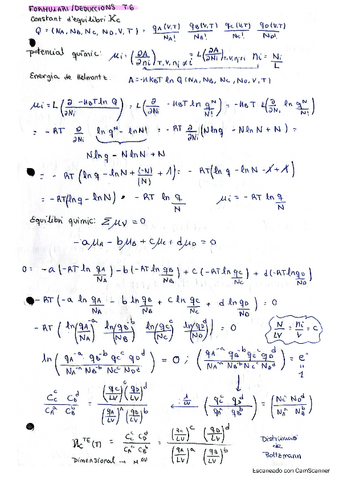 FORMULARI/DEDUCCIONS T6
constant d'equilibri Kc
Q = (NA, NB, NC, ND, V, T) = qA(V,T)/NA! qB(V,T)/NB! qC(V,T)/NC! qD(V,T)/ND!
potencial químic: μi = (∂A/∂ni)T,V,nj≠i = L(∂A/∂Ni)T,V,nj≠i ni = Ni/L
Energia de Helmontz: A = -kBT ln Q (NA, NB, NC, ND, V, T)
μi = L(∂/∂Ni -kBT ln Q) = L(∂/∂Ni -kBT ln q^N/N!) = -kBT L(∂/∂Ni ln q^N/N!)
= -RT ∂/∂Ni ln q^N - ln N! = -RT ∂/∂Ni (N ln q - N ln N + N) =
N ln q - N ln N + N
= -RT (ln q - ln N + (-N)/(N) + 1) = -RT (ln q - ln N - 1 + 1)
= -RT (ln q - ln N) = -RT ln q/N μi = -RT ln q/N
Equilibri químic: Σ μν = 0
-aμA - bμB + cμC + dμD = 0
0 = -a (-RT ln qA/NA) - b (-RT ln qB/NB) + c (-RT ln qC/NC) + d (-RT ln qD/ND)
-RT (-a ln qA/NA - b ln qB/NB + c ln qC/NC + d ln qD/ND) = 0
-RT (ln(qA/NA)^-a ln(qB/NB)^-b ln(qC/NC)^c ln(qD/ND)^d) = 0 N/LV = ni/V = c
ln (qA^-a qB^-b qC^c qD^d / NA^-a NB^-b NC^c ND^d) = 0 ; (qA^-a qB^-b qC^c qD^d / NA^-a NB^-b NC^c ND^d) = e^0 = 1
CC^c CD^d / CA^a CB^b = (qC/LV)^c (qD/LV)^d / (qA/LV)^a (qB/LV)^b (qC^c qD^d / qA^a qB^b) = (NC^c ND^d / NA^a NB^b)
Kc^TE (T) = CC^c CD^d / CA^a CB^b = (qC/LV)^c (qD/LV)^d / (qA/LV)^a (qB/LV)^b
Distribució
de
Boltzmann
Dimensional → M^Δν
Escaneado con CamScanner